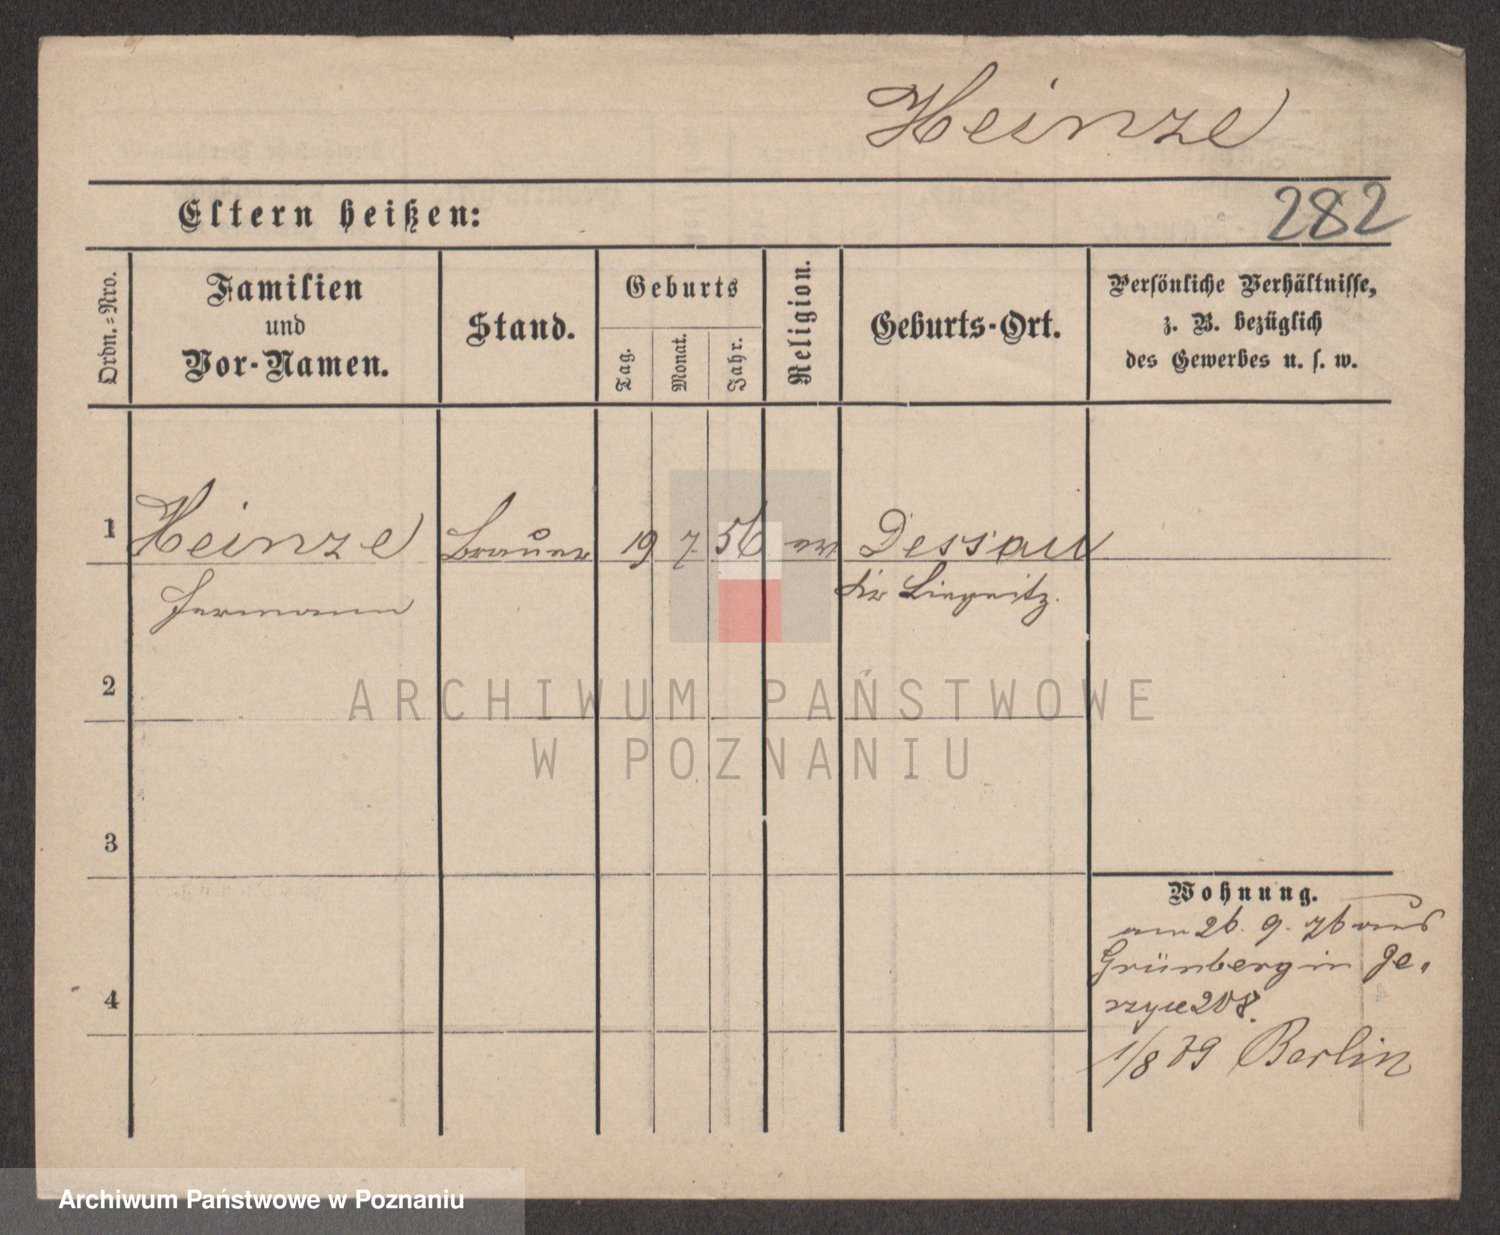 Heinze
Eltern heißen:
282
Ordn.-Nro.
Familien
und
Vor-Namen.
Stand.
Geburts
Tag.
Monat.
Jahr.
Religion.
Geburts-Ort.
Persönliche Verhältnisse,
z. B. bezüglich
des Gewerbes u. s. w.
1
Heinze
Hermann
Brauer
19
7
56
ev
Dessau
Kr Liegnitz.
2
3
4
Wohnung.
am 26. 9. 76 aus
Grünberg in Je-
rzyce 208.
1/8 79 Berlin
ARCHIWUM PAŃSTWOWE
W POZNANIU
Archiwum Państwowe w Poznaniu